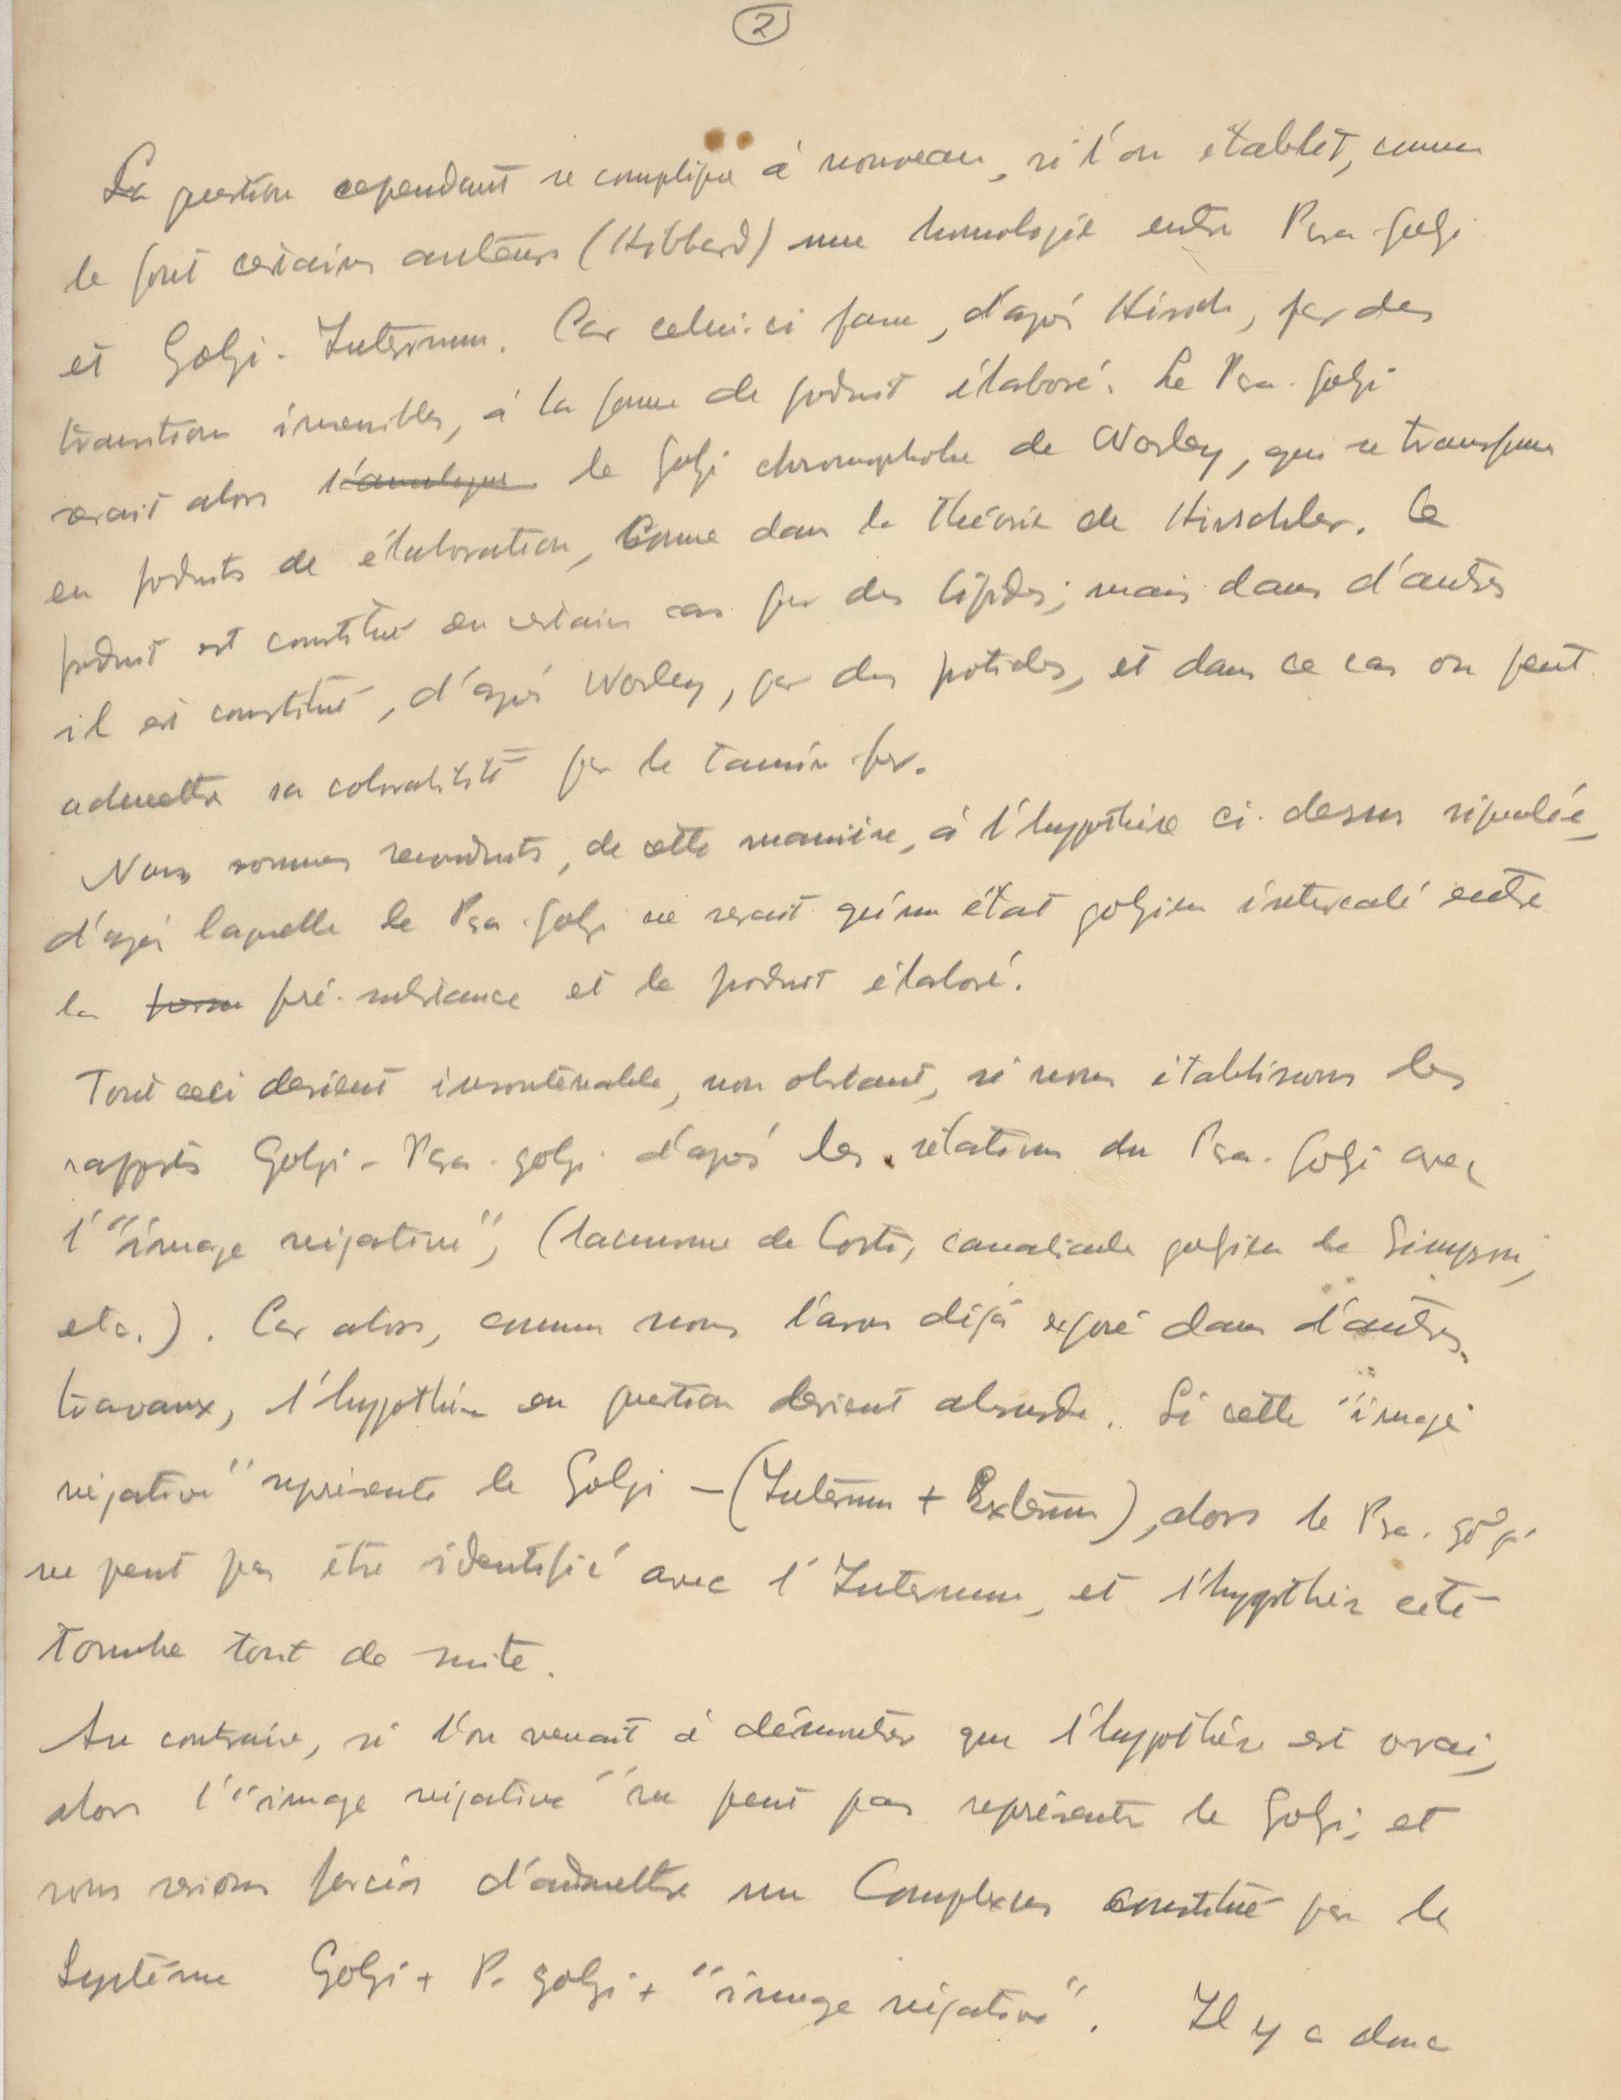 2
La question cependant se complique à nouveau, si l'on établit, comme
le font certains auteurs (Hibbard) une homologie entre Para-golgi
et Golgi-Internum. Car celui-ci passe, d'après Hirsch, par des
transitions insensibles, à la forme de produit élaboré. Le Para-golgi
serait alors l'analogue le golgi chromophobe de Worley, qui se transforme
en produits de élaboration, Comme dans la théorie de Hirschler. Ce
produit est constitué en certains cas par des lipides; mais dans d'autres
il est constitué, d'après Worley, par des protides, et dans ce cas on peut
admettre sa colorabilité par le tannin-fer.
Nous sommes reconduits, de cette manière, à l'hypothèse ci-dessus signalée,
d'après laquelle le Para-golgi ne serait qu'un état golgien intercalé entre
la forme pré-substance et le produit élaboré.
Tout ceci devient insoutenable, non obstant, si nous établissons les
rapports Golgi-Para-golgi d'après les relations du Para-Golgi avec
l'"image négative", (lacunome de Corti, canalicule golgien de Simpson,
etc.). Car alors, comme nous l'avons déjà exposé dans d'autres
travaux, l'hypothèse en question devient absurde. Si cette "image
négative" représente le Golgi - (Internum + Externum), alors le Para-golgi
ne peut pas être identifié avec l'Internum, et l'hypothèse cité
tombe tout de suite.
Au contraire, si l'on venait à démontrer que l'hypothèse est vrai,
alors l'"image négative" ne peut pas représenter le Golgi; et
nous serions forcés d'admettre un Complexus constitué par le
Système Golgi + P-golgi + "image négative". Il y a donc